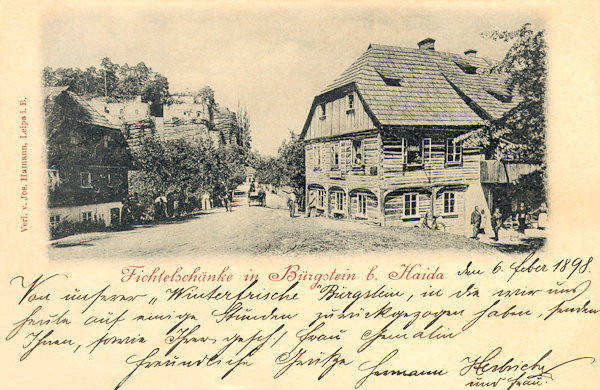 Verl. v. Jos. Hamann, Leipa i. B.
Fichtelschänke in Bürgstein b. Haida
den 6. feber 1898.
Von unserer „Winterfrische“ Bürgstein, in die wir uns
heute auf einige Stunden zurückgezogen haben, senden
Ihnen, sowie Ihrer gesch. frau Gemalin
freundliche Grüße
Hermann Herbrich
und Frau.